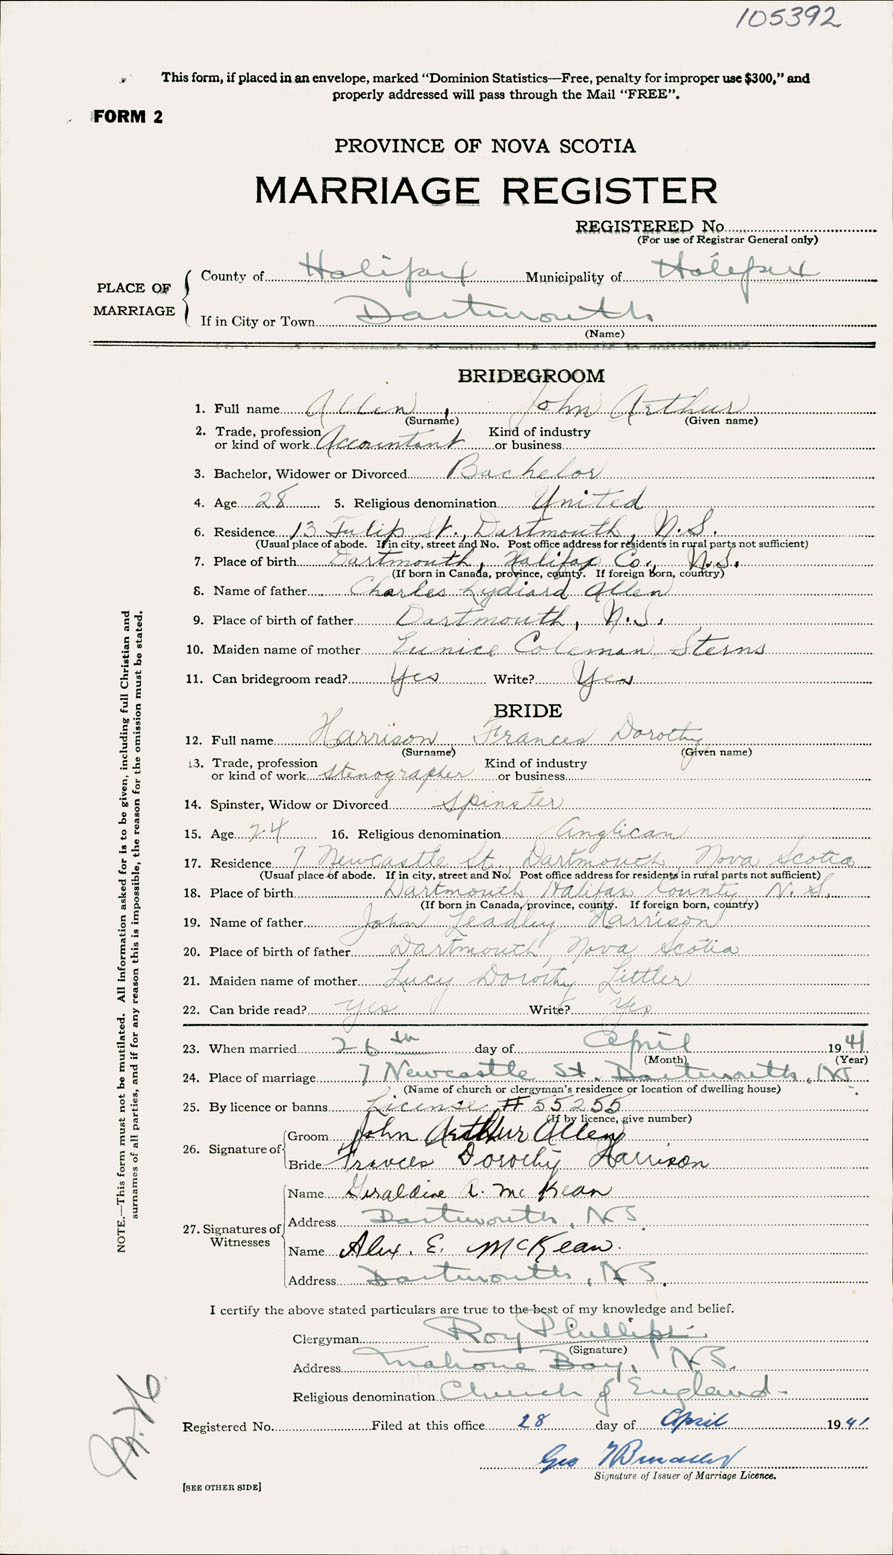 105392
This form, if placed in an envelope, marked “Dominion Statistics—Free, penalty for improper use $300,” and
properly addressed will pass through the Mail “FREE”.
FORM 2
PROVINCE OF NOVA SCOTIA
MARRIAGE REGISTER
REGISTERED No
(For use of Registrar General only)
PLACE OF MARRIAGE
County of Halifax Municipality of Halifax
If in City or Town Dartmouth
(Name)
BRIDEGROOM
1. Full name Allen, John Arthur
(Surname) (Given name)
2. Trade, profession or kind of work Accountant Kind of industry or business
3. Bachelor, Widower or Divorced Bachelor
4. Age 28 5. Religious denomination United
6. Residence 13 Tulip St., Dartmouth, N.S.
(Usual place of abode. If in city, street and No. Post office address for residents in rural parts not sufficient)
7. Place of birth Dartmouth, Halifax Co., N.S.
(If born in Canada, province, county. If foreign born, country)
8. Name of father Charles Lydiard Allen
9. Place of birth of father Dartmouth, N.S.
10. Maiden name of mother Eunice Coleman Sterns
11. Can bridegroom read? Yes Write? Yes
BRIDE
12. Full name Harrison Frances Dorothy
(Surname) (Given name)
13. Trade, profession or kind of work Stenographer Kind of industry or business
14. Spinster, Widow or Divorced Spinster
15. Age 24 16. Religious denomination Anglican
17. Residence 7 Newcastle St. Dartmouth, Nova Scotia
(Usual place of abode. If in city, street and No. Post office address for residents in rural parts not sufficient)
18. Place of birth Dartmouth Halifax County N.S.
(If born in Canada, province, county. If foreign born, country)
19. Name of father John Leadley Harrison
20. Place of birth of father Dartmouth, Nova Scotia
21. Maiden name of mother Lucy Dorothy Littler
22. Can bride read? Yes Write? Yes
23. When married 26th day of April 1941
(Month) (Year)
24. Place of marriage 7 Newcastle St. Dartmouth, NS
(Name of church or clergyman's residence or location of dwelling house)
25. By licence or banns License # 55255
(If by licence, give number)
26. Signature of Groom John Arthur Allen
Bride Frances Dorothy Harrison
27. Signatures of Witnesses
Name Geraldine A. McKean
Address Dartmouth, NS.
Name Alex. E. McKean.
Address Dartmouth, NS.
I certify the above stated particulars are true to the best of my knowledge and belief.
Clergyman Roy Phillips
(Signature)
Address Mahone Bay, NS.
Religious denomination Church of England
Registered No. Filed at this office 28 day of April 1941
Geo
Signature of Issuer of Marriage Licence.
[SEE OTHER SIDE]
NOTE.—This form must not be mutilated. All information asked for is to be given, including full Christian and
surnames of all parties, and if for any reason this is impossible, the reason for the omission must be stated.